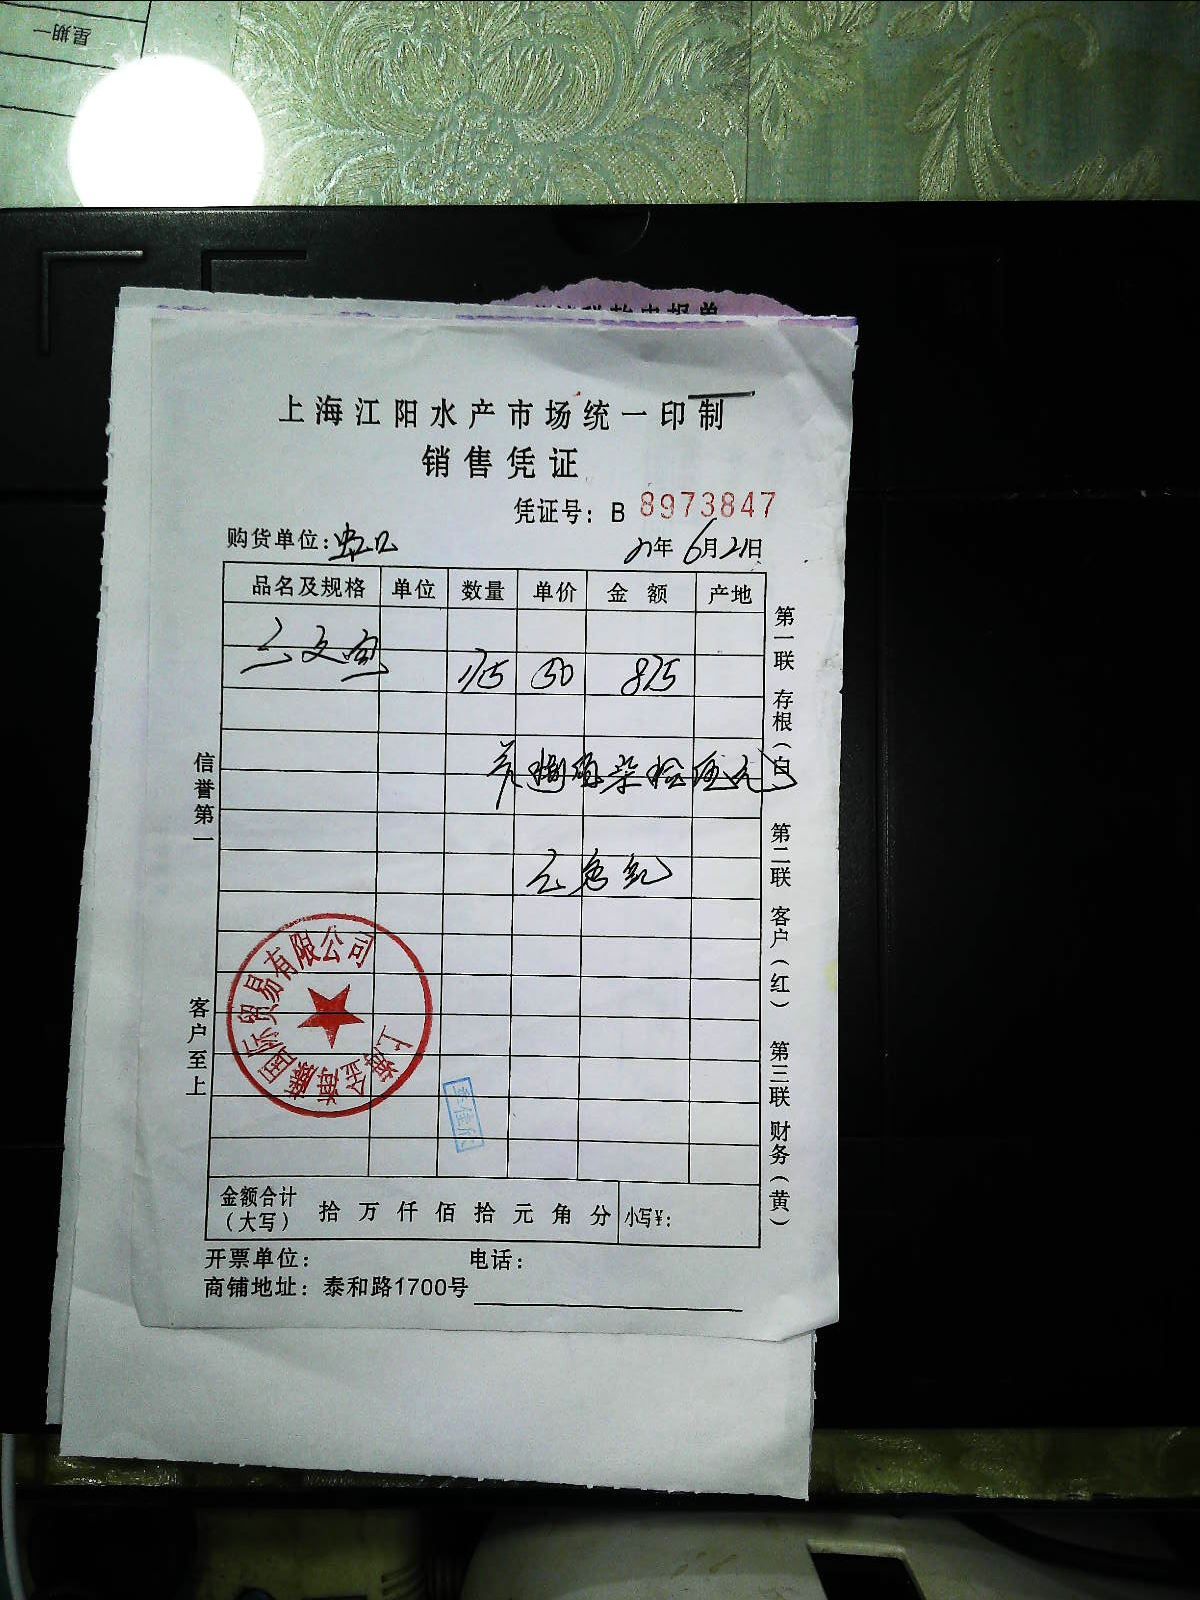 星期一
上海江阳水产市场统一印制
销售凭证
凭证号：B 8973847
购货单位：虹口
21年6月21日
品名及规格 单位 数量 单价 金额 产地
三文鱼 17.5 50 875
共捌佰柒拾伍元
信誉第一
客户至上
第一联 存根（白） 第二联 客户（红） 第三联 财务（黄）
上海金海藤国际贸易有限公司
金额合计（大写） 拾 万 仟 佰 拾 元 角 分 小写¥：
开票单位： 电话：
商铺地址：泰和路1700号